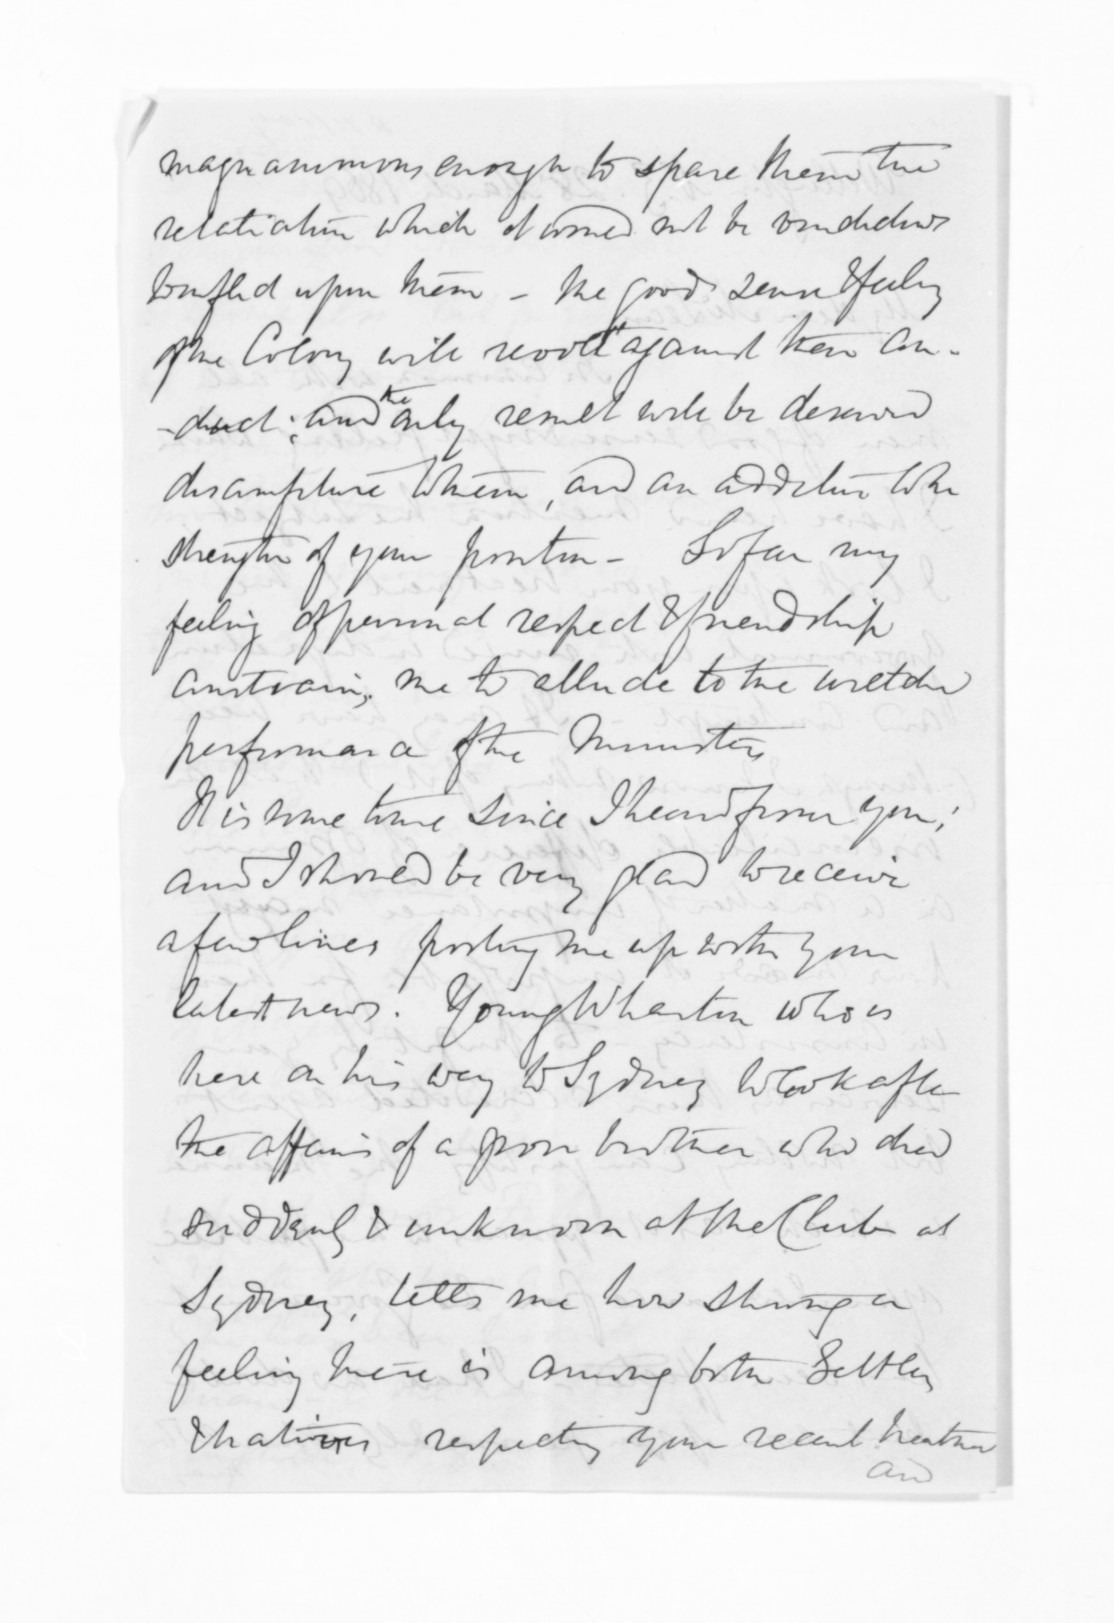 magnanimous enough to spare them the
retaliation which it would not be vindictive
to inflict upon them - the good sense & feeling
of the Colony will revolt against their con-
-duct; and the only result will be deserved
discomfiture to them, and an addition to the
strength of your position - So far my
feeling of personal respect & friendship
constrains me to allude to the wretched
performance of the Ministers
It is some time since I heard from you;
and I should be very glad to receive
a few lines posting me up with your
latest news. Young Wharton who is
here on his way to Sydney to look after
the affairs of a poor brother who died
suddenly & unknown at the Club at
Sydney, tells me how strong a
feeling there is among both Settlers
& natives respecting your recent treatment
and